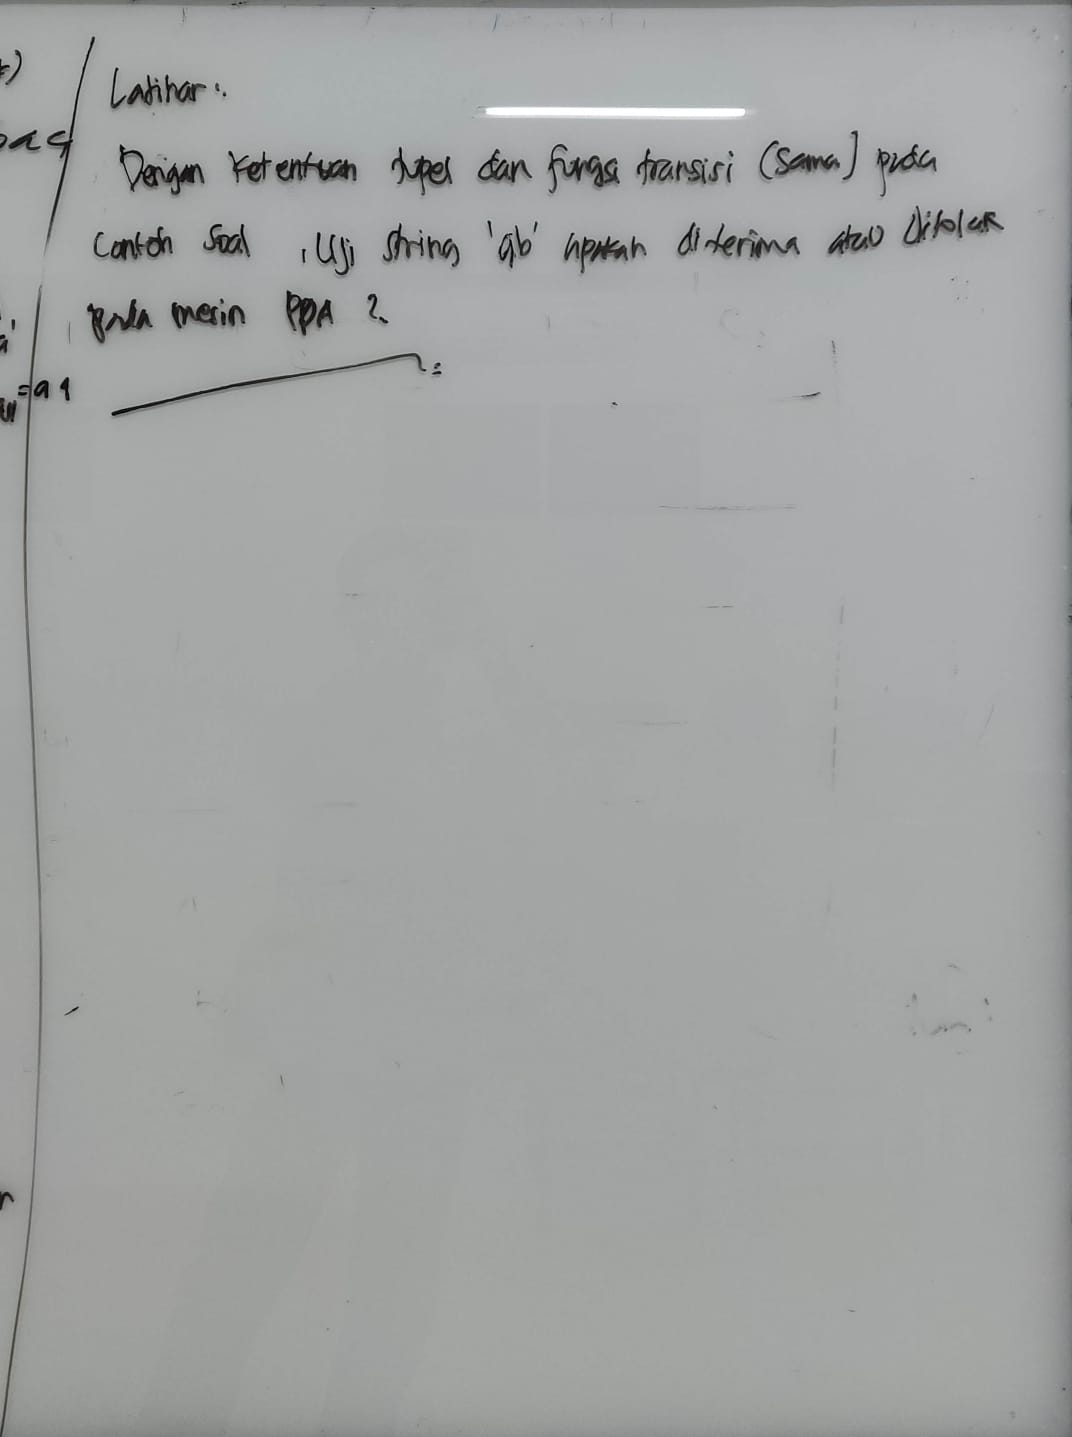 Latihan :
Dengan ketentuan tupel dan fungsi transisi (sama) pada
Contoh Soal , Uji string 'ab' apakah diterima atau ditolak
pada mesin PDA ?
=a a